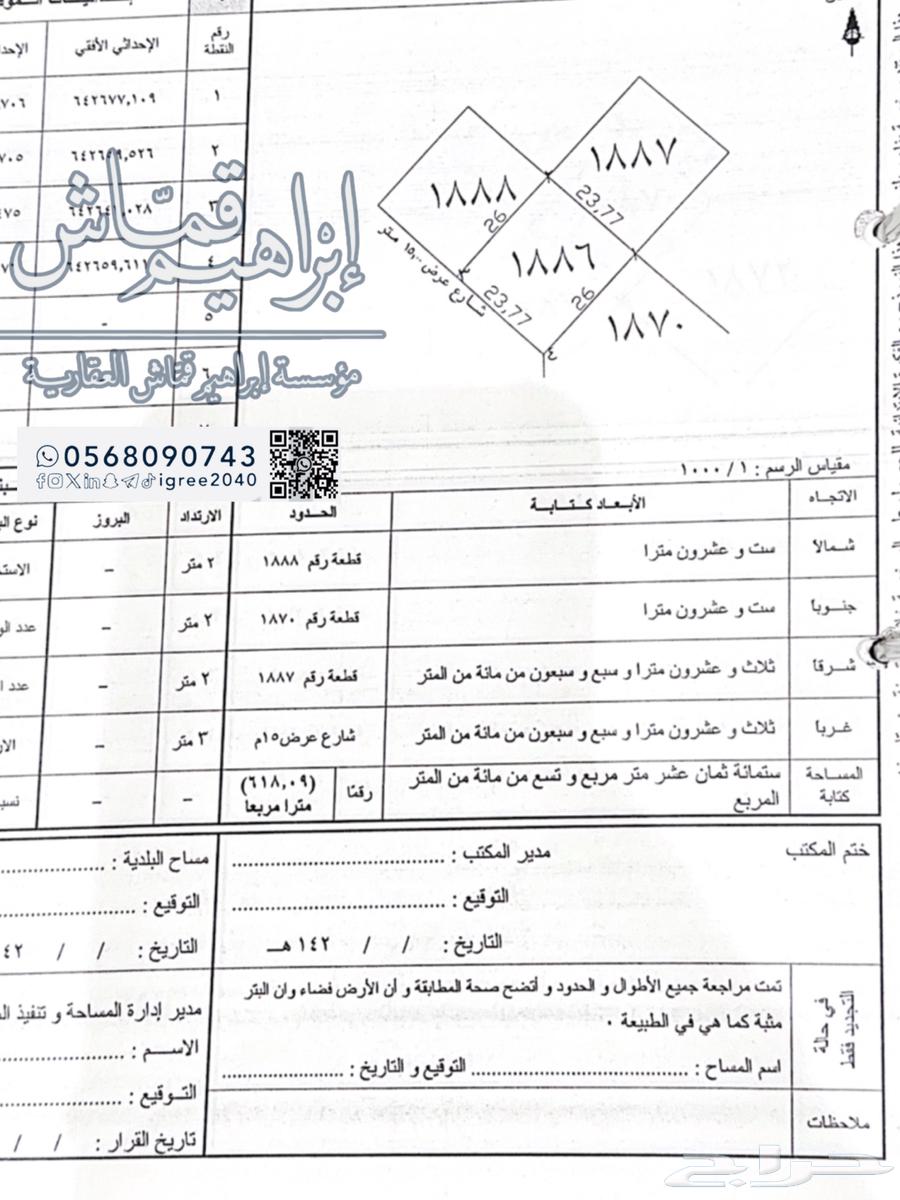 رقم النقطة
الإحداثي الأفقي
١
٦٤٢٦٧٧,١٠٩
٢
٣
٤
٥
٦
١٨٨٧
١٨٨٨
١٨٨٦
١٨٧٠
23,77
26
26
23,77
شارع عرض ١٥,٠٠ متر
إبراهيم قمّاش
مؤسسة إبراهيم قمّاش العقارية
0568090743
igree2040
مقياس الرسم : ١ / ١٠٠٠
الاتجاه
الأبعاد كتابة
الحدود
الارتداد
البروز
شمالاً
ست و عشرون مترا
قطعة رقم ١٨٨٨
٢ متر
–
جنوباً
ست و عشرون مترا
قطعة رقم ١٨٧٠
٢ متر
–
شرقاً
ثلاث و عشرون مترا و سبع و سبعون من مائة من المتر
قطعة رقم ١٨٨٧
٢ متر
–
غرباً
ثلاث و عشرون مترا و سبع و سبعون من مائة من المتر
شارع عرض ١٥م
٣ متر
–
المساحة كتابة
ستمائة ثمان عشر متر مربع و تسع من مائة من المتر المربع
رقمًا
(٦١٨,٠٩) مترا مربعا
–
–
ختم المكتب
مدير المكتب :
التوقيع :
التاريخ : / / ١٤٢ هـ
مساح البلدية :
التوقيع :
التاريخ : / /
في حالة التجديد فقط
تمت مراجعة جميع الأطوال و الحدود و أتضح صحة المطابقة و أن الأرض فضاء وان البتر
مثبة كما هي في الطبيعة .
اسم المساح : التوقيع و التاريخ :
مدير إدارة المساحة و تنفيذ
الاسم :
التوقيع :
تاريخ القرار : / /
ملاحظات
حراج